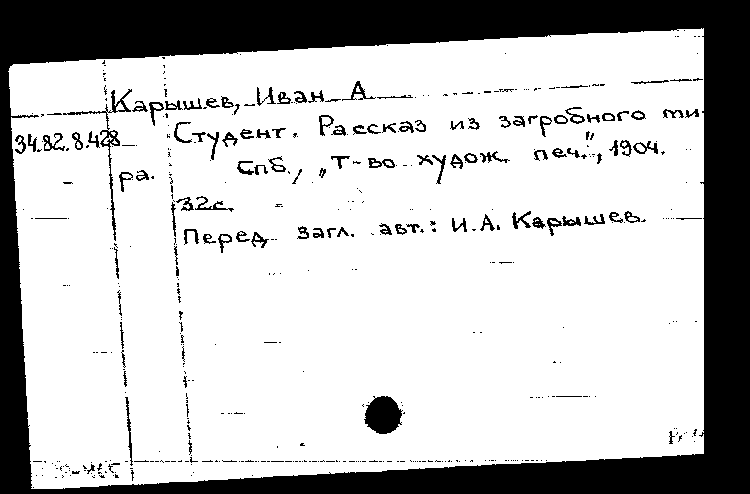 Карышев, Иван А
34.82.8.428
Студент. Рассказ из загробного ми-
ра. Спб., „Т-во худож. печ.", 1904.
32с.
Перед загл. авт.: И.А. Карышев.